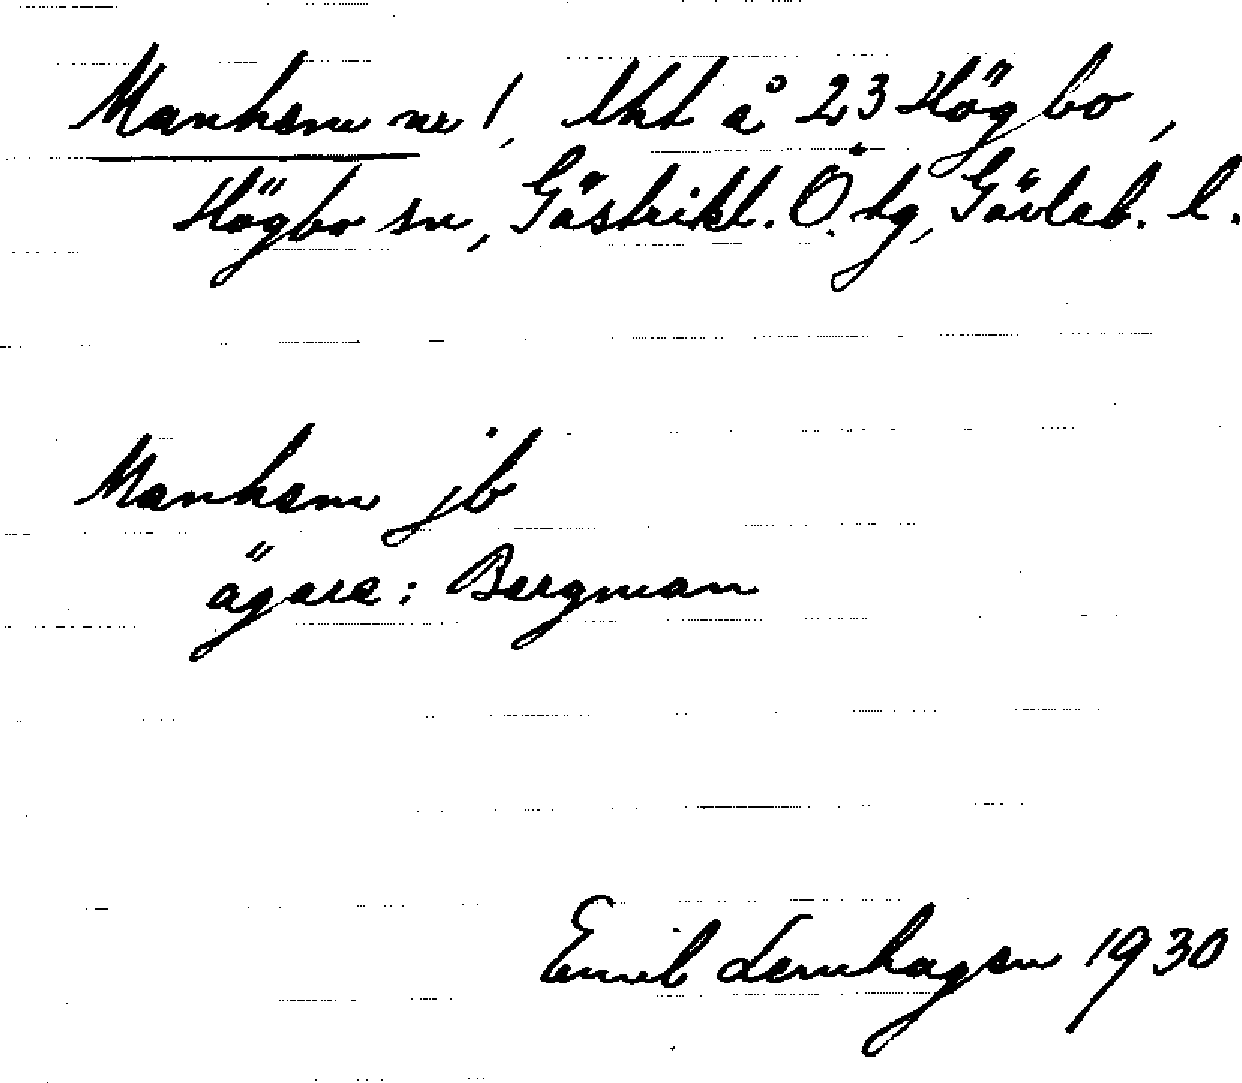 Manhem nr 1, Uht å 23 Högbo,
Högbo sn, Gästrikl. Ö. tg, Gävleb. l.
Manhem jb
ägare: Bergman
Emil Lernhagen 1930